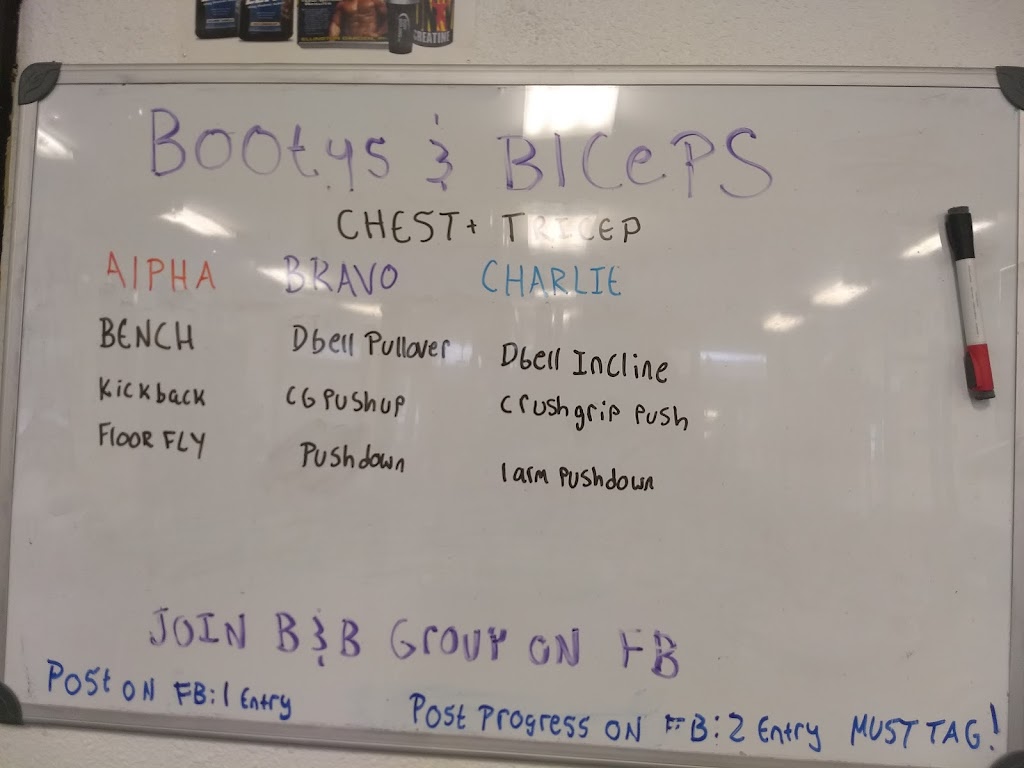 CREATINE
Bootys & BICePS
CHEST + TRICEP
AlPHA BRAVO CHARLIE
BENCH Dbell Pullover Dbell Incline
Kickback CG Pushup crushgrip push
FLOOR FLY Pushdown 1arm pushdown
JOIN B&B GrouP ON FB
Post ON FB:1 Entry Post Progress ON FB:2 Entry MUST TAG!